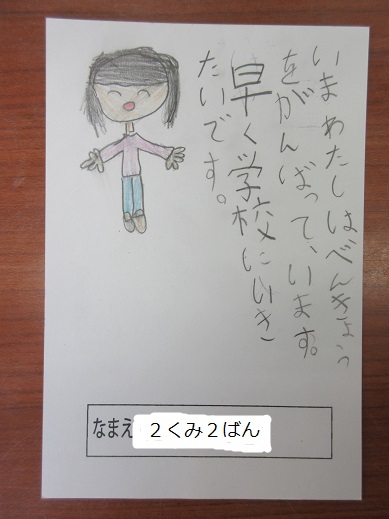 いまわたしはべんきょう
をがんばって、います。
早く学校にいき
たいです。
なまえ ２くみ２ばん